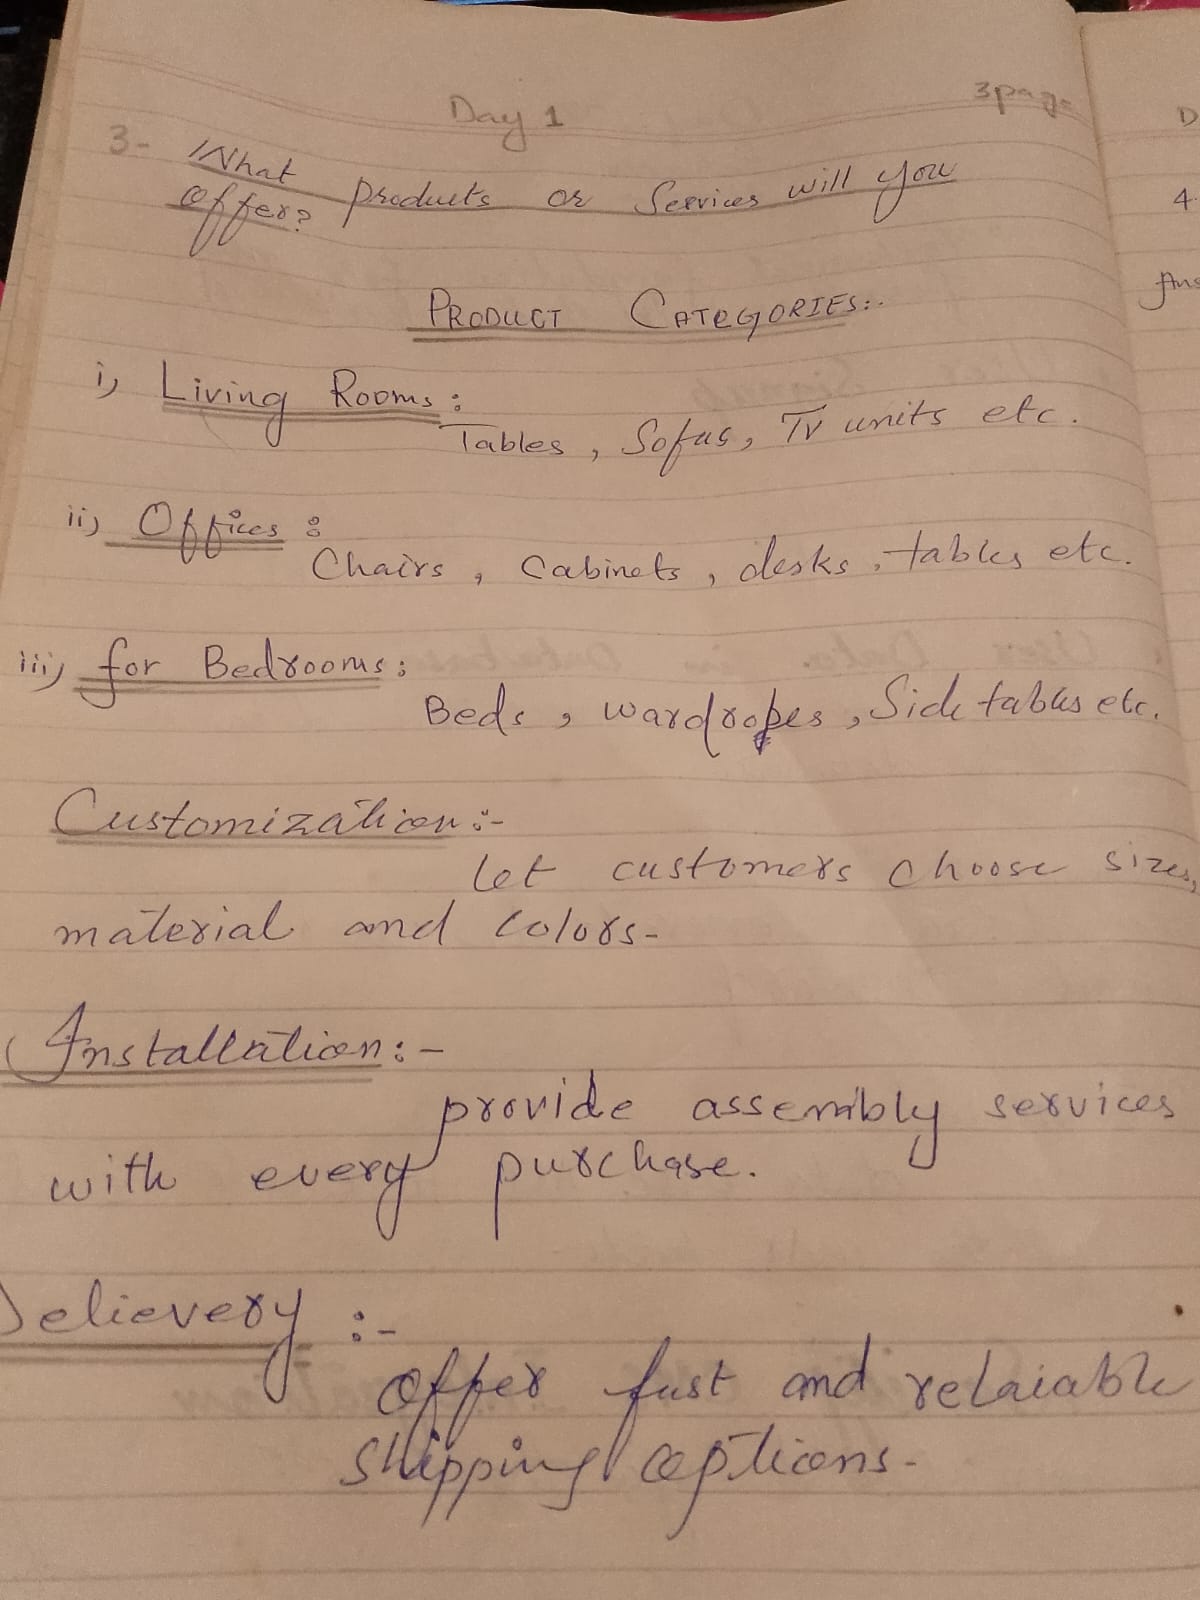 Day 1
3page
3- What products or Services will you
offer?
PRODUCT CATEGORIES:.
i) Living Rooms:
Tables, Sofas, TV units etc.
ii) Offices:
Chairs, Cabinets, desks, tables etc.
iii) for Bedrooms:
Beds, wardropes, Side tables etc.
Customization:-
Let customers choose sizes,
material and colors-
Installation:-
provide assembly services
with every purchase.
Delievery:-
offer fast and relaiable
shipping options-
D
4.
Ans